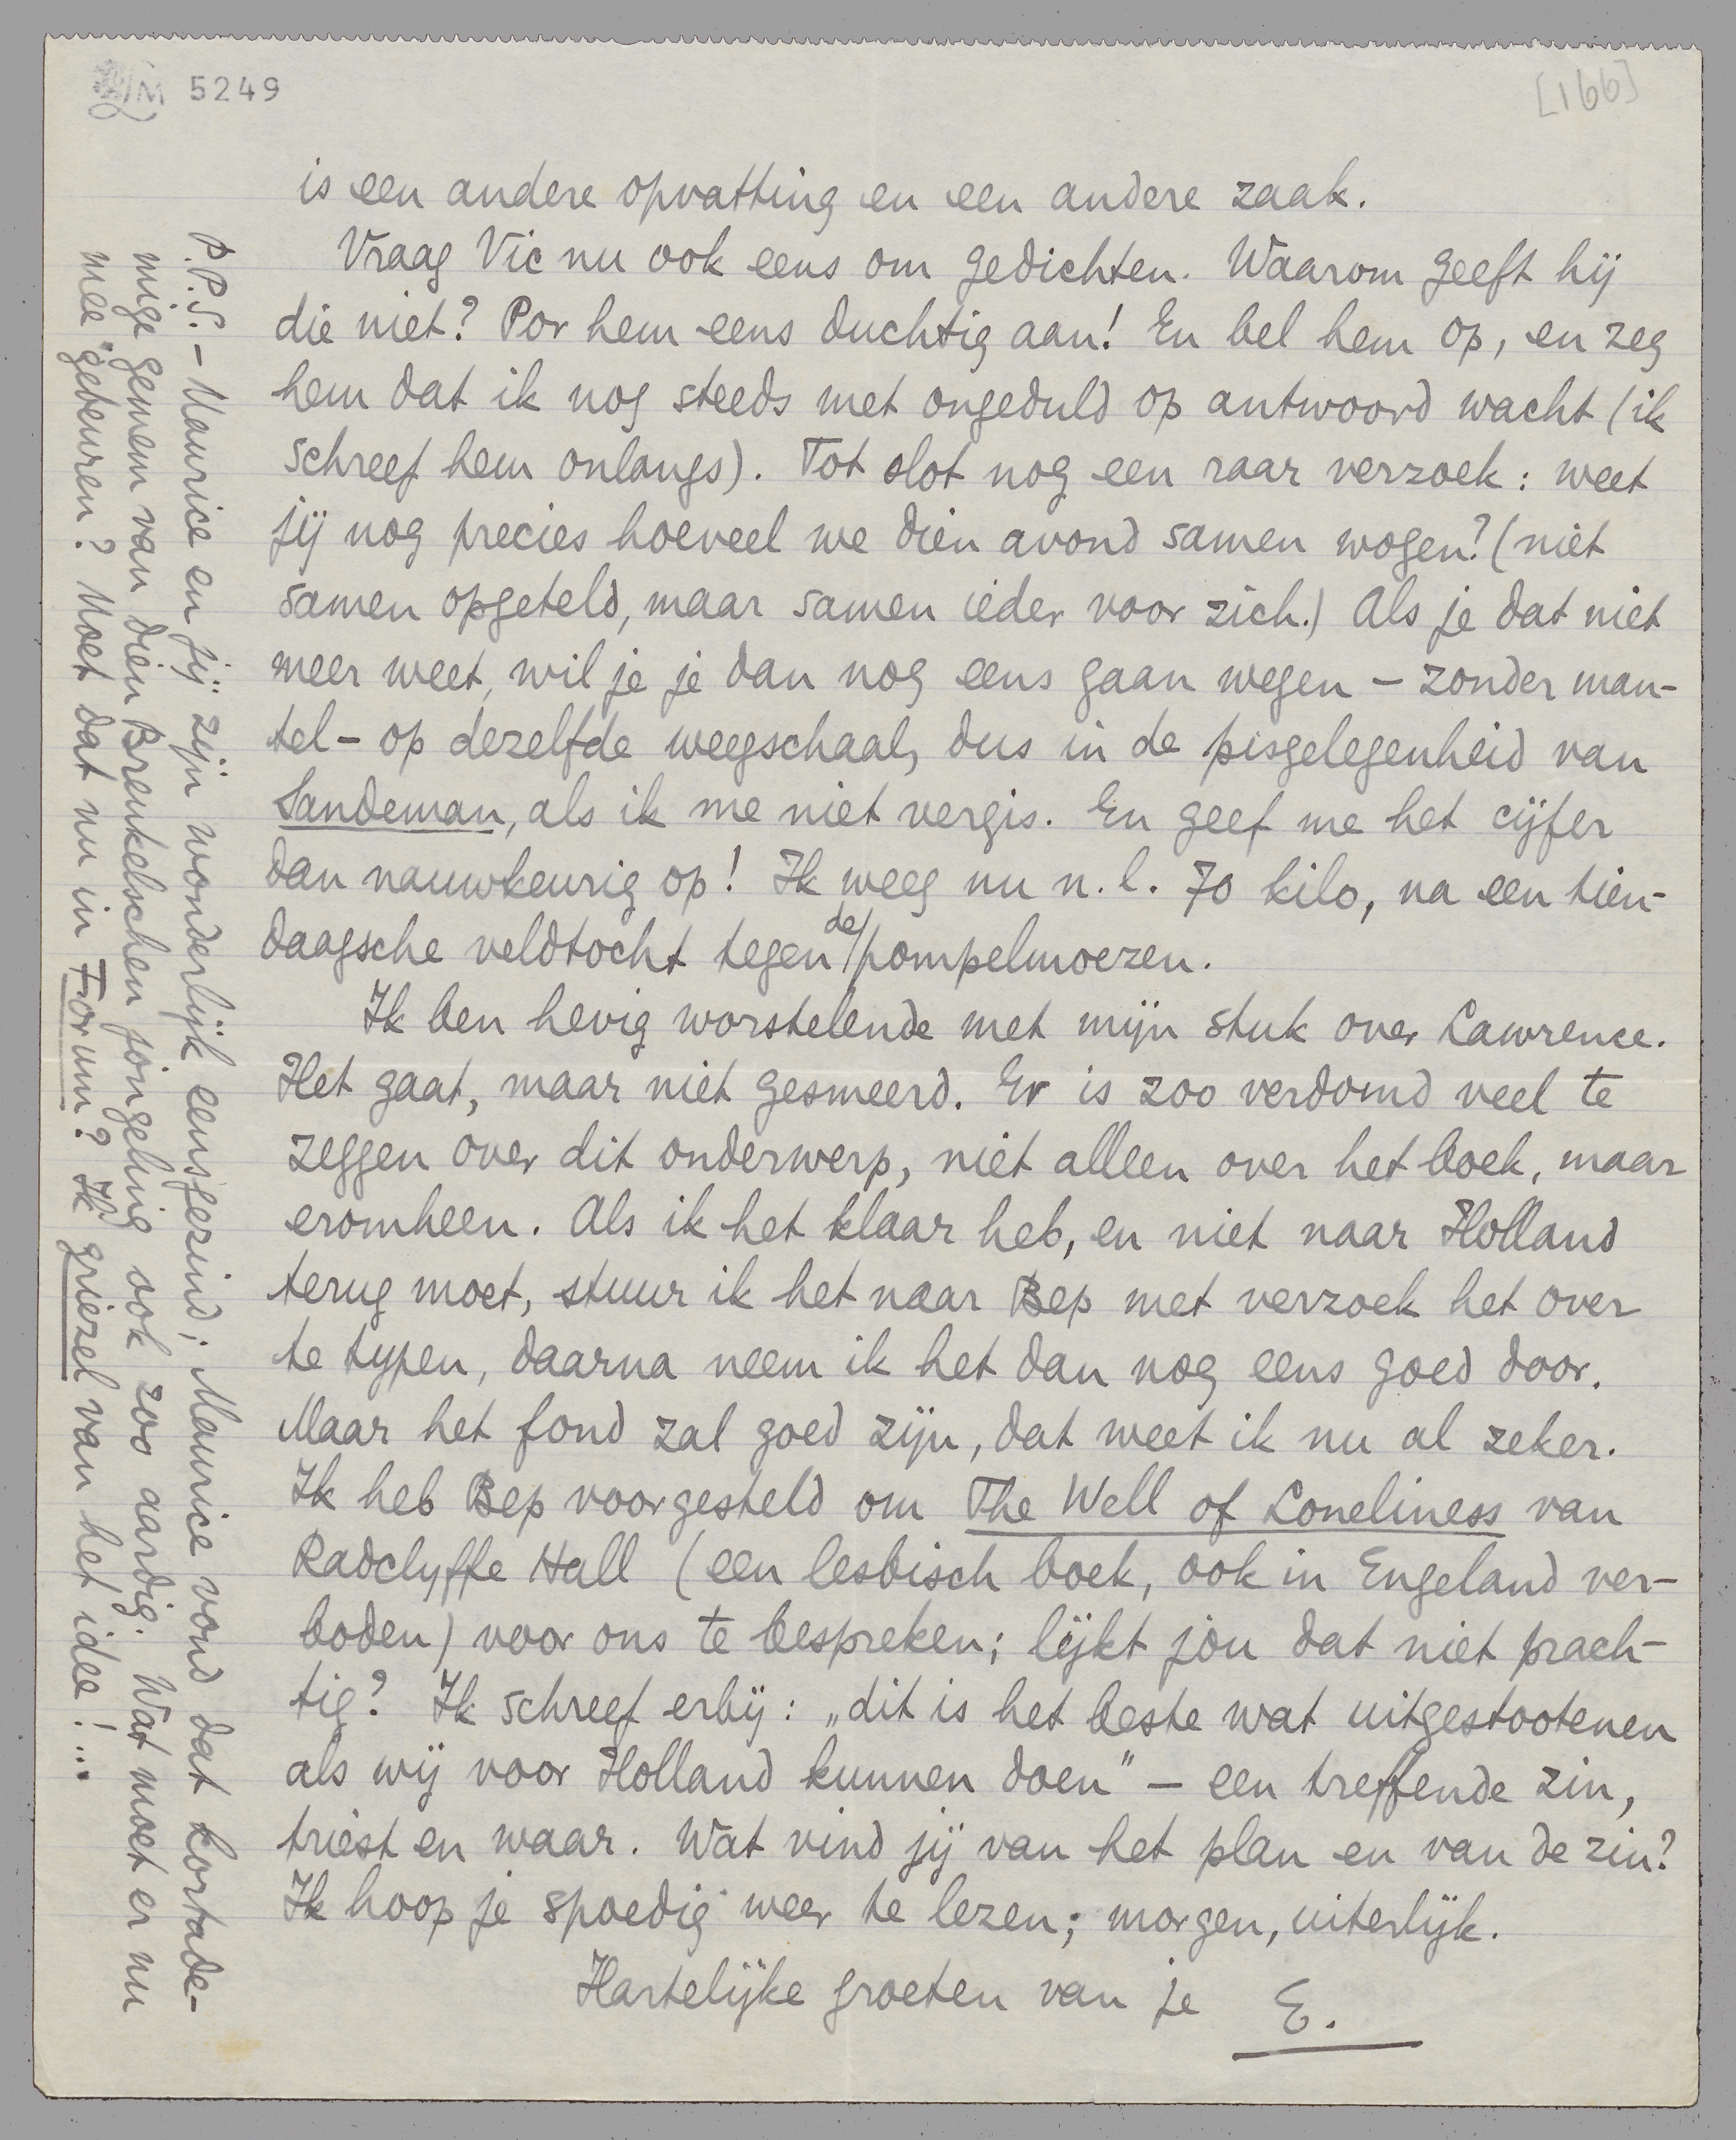 M 5249
[166]
is een andere opvatting en een andere zaak.
Vraag Vic nu ook eens om gedichten. Waarom geeft hij
die niet? Por hem eens duchtig aan! En bel hem op, en zeg
hem dat ik nog steeds met ongeduld op antwoord wacht (ik
schreef hem onlangs). Tot slot nog een raar verzoek: weet
jij nog precies hoeveel we dien avond samen wogen? (niet
samen opgeteld, maar samen ieder voor zich.) Als je dat niet
meer weet, wil je je dan nog eens gaan wegen – zonder man-
tel – op dezelfde weegschaal, dus in de pisgelegenheid van
Sandeman, als ik me niet vergis. En geef me het cijfer
dan nauwkeurig op! Ik weeg nu n.l. 70 kilo, na een tien-
daagsche veldtocht tegen de pompelmoezen.
Ik ben hevig worstelende met mijn stuk over Lawrence.
Het gaat, maar niet gesmeerd. Er is zoo verdomd veel te
zeggen over dit onderwerp, niet alleen over het boek, maar
eromheen. Als ik het klaar heb, en niet naar Holland
terug moet, stuur ik het naar Bep met verzoek het over
te typen, daarna neem ik het dan nog eens goed door.
Maar het fond zal goed zijn, dat weet ik nu al zeker.
Ik heb Bep voorgesteld om The Well of Loneliness van
Radclyffe Hall (een lesbisch boek, ook in Engeland ver-
boden) voor ons te bespreken; lijkt jou dat niet prach-
tig? Ik schreef erbij: „dit is het beste wat uitgestootenen
als wij voor Holland kunnen doen” – een treffende zin,
triest en waar. Wat vind jij van het plan en van de zin?
Ik hoop je spoedig weer te lezen; morgen, uiterlijk.
Hartelijke groeten van je E.
P.P.S. – Maurice en jij zijn wonderlijk eensgezind; Maurice vond dat kortade-
mige gewem van dien Brenkelschen jongeling ook zoo aardig. Wat moet er nu
mee gebeuren? Moet dat nu in Forum? Ik griezel van het idee!...